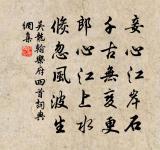 妾心江岸石
千古無變更
郎心江上水
倏忽風波生
吳龍翰樂府四首詞典
網集